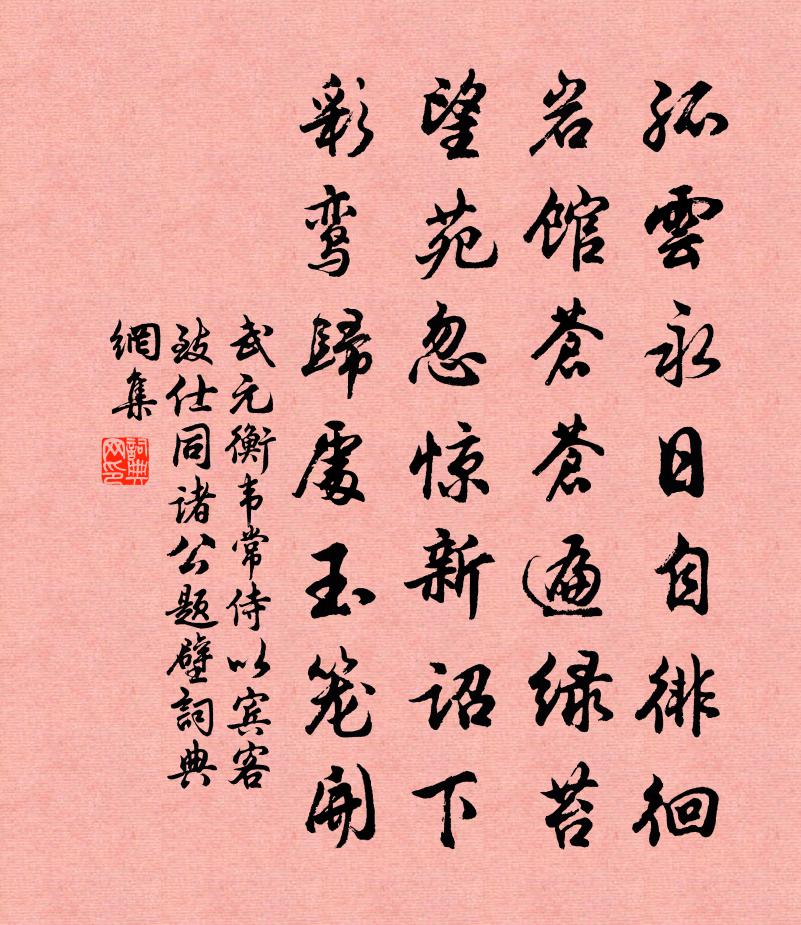 孤雲永日自徘徊
岩馆蒼蒼遍绿苔
望苑忽惊新诏下
彩鸾歸處玉笼開
武元衡韦常侍以宾客
致仕同诸公题壁詞典
網集
詞典
网印